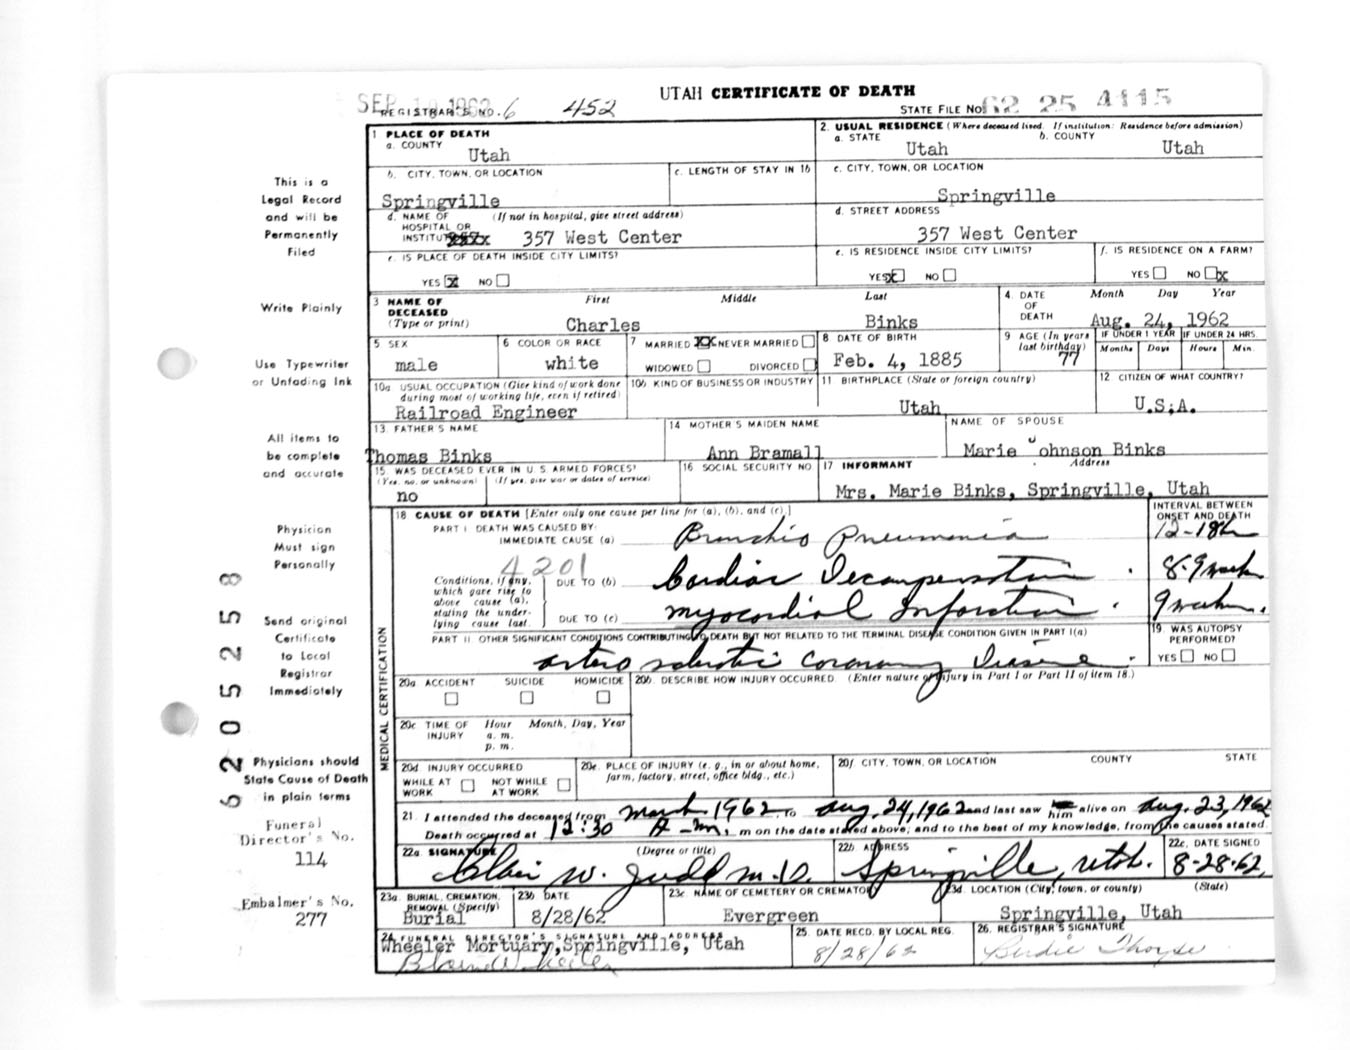 UTAH CERTIFICATE OF DEATH
SEP 1962
REGISTRAR'S NO. 6 452
STATE FILE NO. 62 25 4115
1 PLACE OF DEATH
a. COUNTY
Utah
2. USUAL RESIDENCE (Where deceased lived. If institution: Residence before admission)
a. STATE
Utah
b. COUNTY
Utah
b. CITY, TOWN, OR LOCATION
Springville
c. LENGTH OF STAY IN 1b
c. CITY, TOWN, OR LOCATION
Springville
d. NAME OF HOSPITAL OR INSTITUT
(If not in hospital, give street address)
357 West Center
d. STREET ADDRESS
357 West Center
e. IS PLACE OF DEATH INSIDE CITY LIMITS?
YES X NO
e. IS RESIDENCE INSIDE CITY LIMITS?
YES X NO
f. IS RESIDENCE ON A FARM?
YES NO X
3 NAME OF DECEASED
(Type or print)
First Middle Last
Charles Binks
4. DATE OF DEATH
Month Day Year
Aug. 24, 1962
5 SEX
male
6 COLOR OR RACE
white
7 MARRIED XX NEVER MARRIED
WIDOWED DIVORCED
8 DATE OF BIRTH
Feb. 4, 1885
9 AGE (In years last birthday)
77
IF UNDER 1 YEAR
Months Days
IF UNDER 24 HRS.
Hours Min.
10a USUAL OCCUPATION (Give kind of work done during most of working life, even if retired)
Railroad Engineer
10b KIND OF BUSINESS OR INDUSTRY
11 BIRTHPLACE (State or foreign country)
Utah
12 CITIZEN OF WHAT COUNTRY?
U.S.A.
13. FATHER'S NAME
Thomas Binks
14 MOTHER'S MAIDEN NAME
Ann Bramall
NAME OF SPOUSE
Marie Johnson Binks
15 WAS DECEASED EVER IN U.S. ARMED FORCES?
(Yes, no, or unknown) (If yes, give war or dates of service)
no
16 SOCIAL SECURITY NO
17 INFORMANT Address
Mrs. Marie Binks, Springville, Utah
18 CAUSE OF DEATH [Enter only one cause per line for (a), (b), and (c).]
INTERVAL BETWEEN ONSET AND DEATH
PART I DEATH WAS CAUSED BY:
IMMEDIATE CAUSE (a) Bronchio Pneumonia 12-18h
4201
Conditions, if any, which gave rise to above cause (a), stating the underlying cause last.
DUE TO (b) Cardiac Decompensation 8-9 weeks
DUE TO (c) Myocardial Infarction 9 weeks.
PART II. OTHER SIGNIFICANT CONDITIONS CONTRIBUTING TO DEATH BUT NOT RELATED TO THE TERMINAL DISEASE CONDITION GIVEN IN PART I(a)
arterosclerotic Coronary Disease
19 WAS AUTOPSY PERFORMED?
YES NO
MEDICAL CERTIFICATION
20a ACCIDENT SUICIDE HOMICIDE
20b. DESCRIBE HOW INJURY OCCURRED. (Enter nature of injury in Part I or Part II of item 18.)
20c TIME OF INJURY
Hour Month, Day, Year
a. m.
p. m.
20d INJURY OCCURRED
WHILE AT WORK NOT WHILE AT WORK
20e. PLACE OF INJURY (e. g., in or about home, farm, factory, street, office bldg., etc.)
20f. CITY, TOWN, OR LOCATION COUNTY STATE
21. I attended the deceased from March 1962 to Aug. 24, 1962 and last saw him alive on Aug. 23, 1962
Death occurred at 12:30 A-m, m on the date stated above; and to the best of my knowledge, from the causes stated.
22a SIGNATURE (Degree or title)
Clair W. Judd M.D.
22b ADDRESS
Springville, Utah.
22c. DATE SIGNED
8-28-62
23a. BURIAL, CREMATION, REMOVAL (Specify)
Burial
23b DATE
8/28/62
23c NAME OF CEMETERY OR CREMATORY
Evergreen
23d. LOCATION (City, town, or county) (State)
Springville, Utah
24 FUNERAL DIRECTOR'S SIGNATURE AND ADDRESS
Wheeler Mortuary, Springville, Utah
25. DATE RECD. BY LOCAL REG.
8/28/62
26. REGISTRAR'S SIGNATURE
Birdie Thorpe
This is a
Legal Record
and will be
Permanently
Filed
Write Plainly
Use Typewriter
or Unfading Ink
All items to
be complete
and accurate
Physician
Must sign
Personally
Send original
Certificate
to Local
Registrar
Immediately
Physicians should
State Cause of Death
in plain terms
Funeral
Director's No.
114
Embalmer's No.
277
62052258